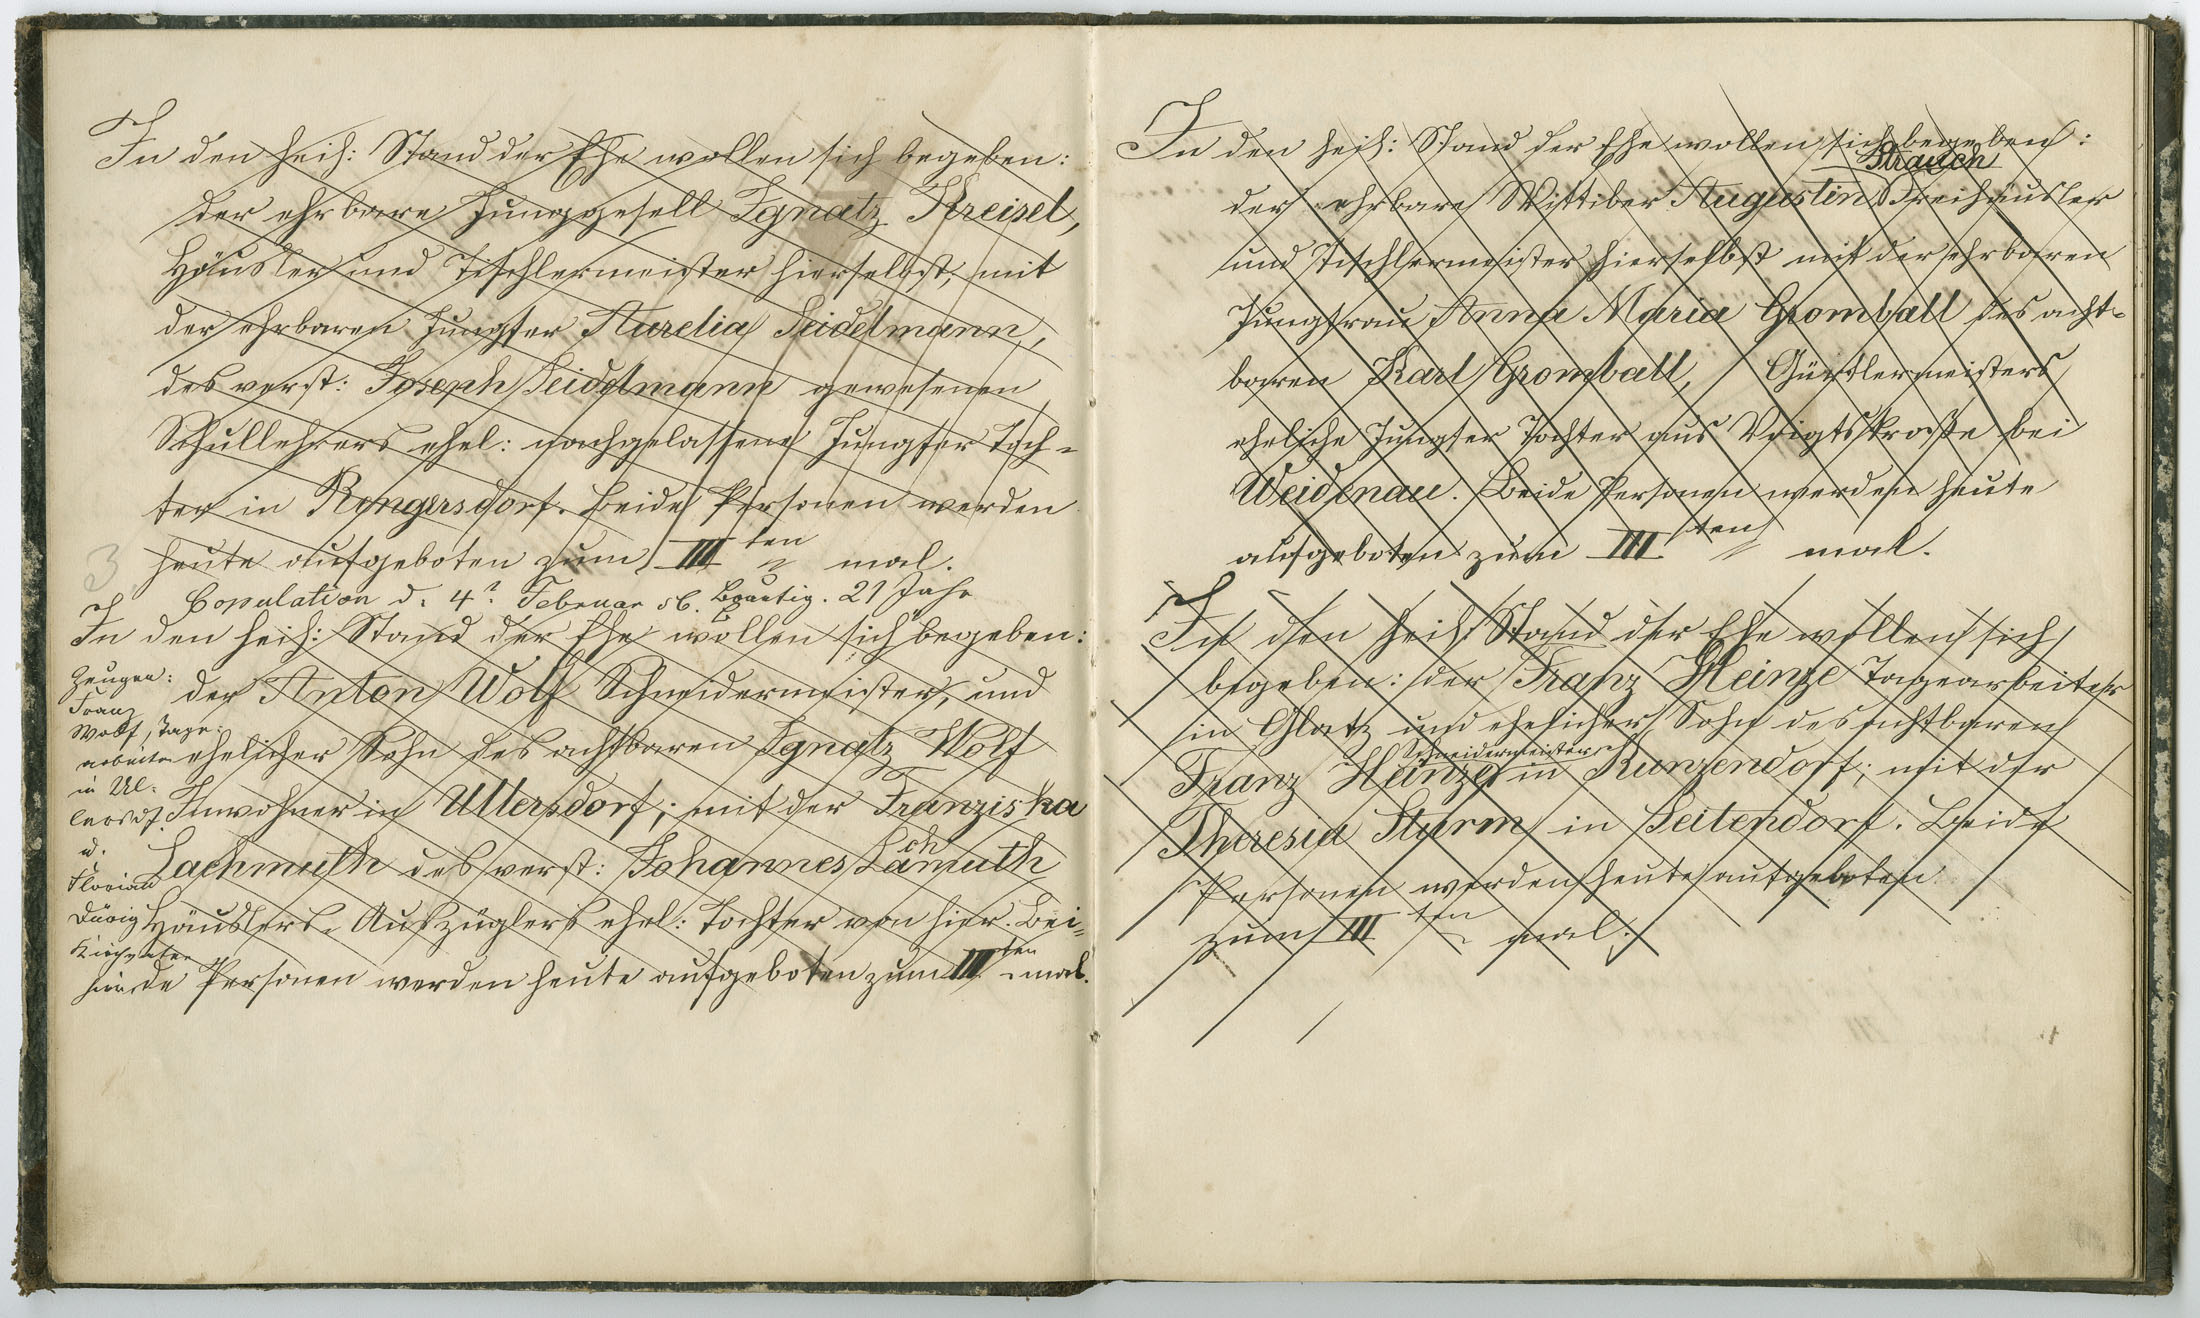 In den heil: Stand der Ehe wollen sich begeben:
der ehrbare Junggesell Ignatz Kreisel,
Häusler und Tischlermeister hierselbst, mit
der ehrbaren Jungfer Aurelia Seidelmann,
des verst: Joseph Seidelmann gewesenen
Schullehrers ehel: nachgelassene Jungfer Toch-
ter in Rengersdorf. Beide Personen werden
3 heute aufgeboten zum III ten mal.
Copulation d. 4t Februar 56. Bräutig. 21 Jahr
In den heil: Stand der Ehe wollen sich begeben:
der Anton Wolf Schneidermeister, und
ehelicher Sohn des achtbaren Ignatz Wolf
Inwohner in Ullersdorf; mit der Franziska
Lachmuth des verst: Johannes Lamuth
ch
Häuslers, Auszüglers ehel: Tochter von hier. Bei-
de Personen werden heute aufgeboten zum III ten mal.
Zeugen:
Franz
Wolf, Tage:
arbeiter
in Ul-
lersdf.
u.
Florian
Kirchvater
hier
In den heil: Stand der Ehe wollen sich begeben:
Strauch
der ehrbare Wittiber Augustin Freihäusler
und Tischlermeister hierselbst mit der ehrbaren
Jungfrau Anna Maria Gromball des acht-
baren Karl Gromball, Gürtlermeisters
eheliche Jungfer Tochter aus Voigtskrosse bei
Weidenau. Beide Personen werden heute
aufgeboten zum III ten mal.
In den heil: Stand der Ehe wollen sich
begeben: der Franz Heinze Tagearbeiter
in Glatz und ehelicher Sohn des achtbaren
Schneidermeisters
Franz Heinze in Kunzendorf; mit der
Theresia Sturm in Seitendorf. Beide
Personen werden heute aufgeboten
zum III ten mal.